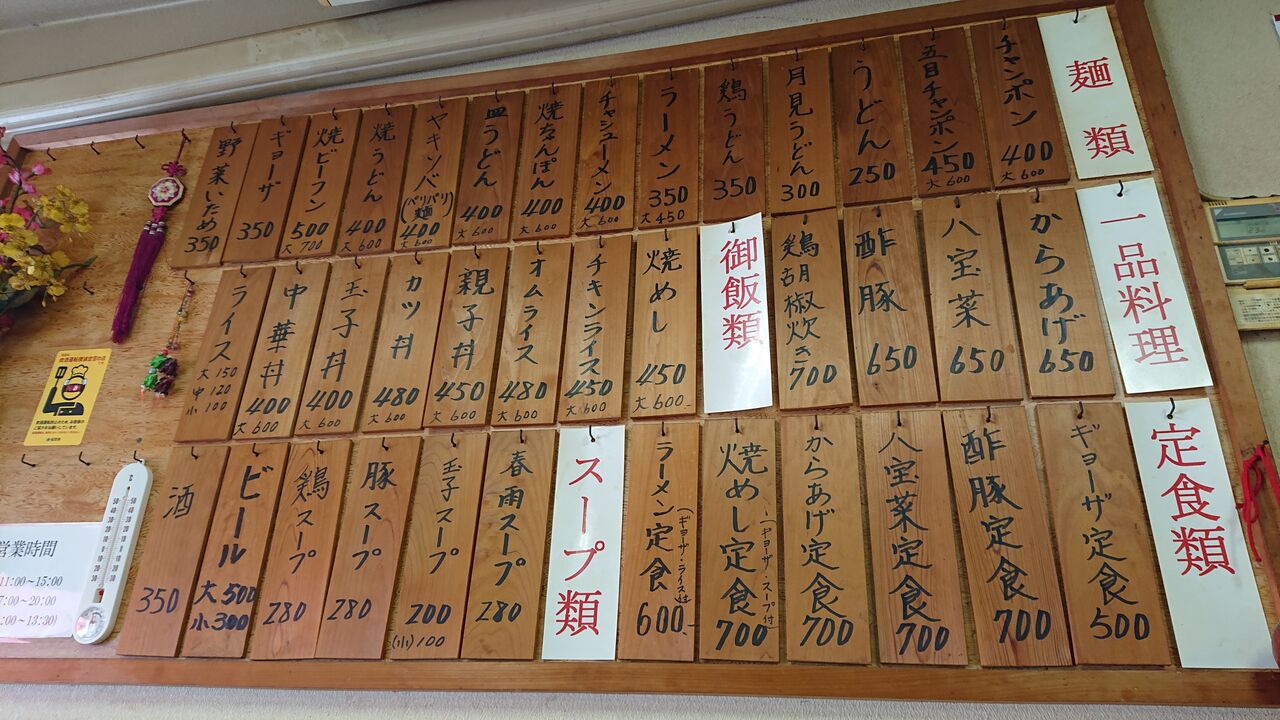 麺類
チャンポン 400 大600
五目チャンポン 450 大600
うどん 250
月見うどん 300
鶏うどん 350
ラーメン 350 大450
チャシューメン 400 大600
焼ちゃんぽん 400 大600
皿うどん 400 大600
ヤキソバ (パリパリ麺) 400 大600
焼うどん 400 大600
焼ビーフン 500 大700
ギョーザ 350
野菜いため 350
一品料理
からあげ 650
八宝菜 650
酢豚 650
鶏胡椒炊き 700
御飯類
焼めし 450 大600
チキンライス 450 大600
オムライス 480 大600
親子丼 450 大600
カツ丼 480 大600
玉子丼 400 大600
中華丼 400 大600
ライス 大150 中120 小100
定食類
ギョーザ定食 500
酢豚定食 700
八宝菜定食 700
からあげ定食 700
焼めし定食 (ギョーザ・スープ付) 700
ラーメン定食 (ギョーザ・ライス付) 600
スープ類
春雨スープ 280
玉子スープ 200 (小)100
豚スープ 280
鶏スープ 280
ビール 大500 小300
酒 350
営業時間
11:00～15:00
7:00～20:00
:00～13:30)